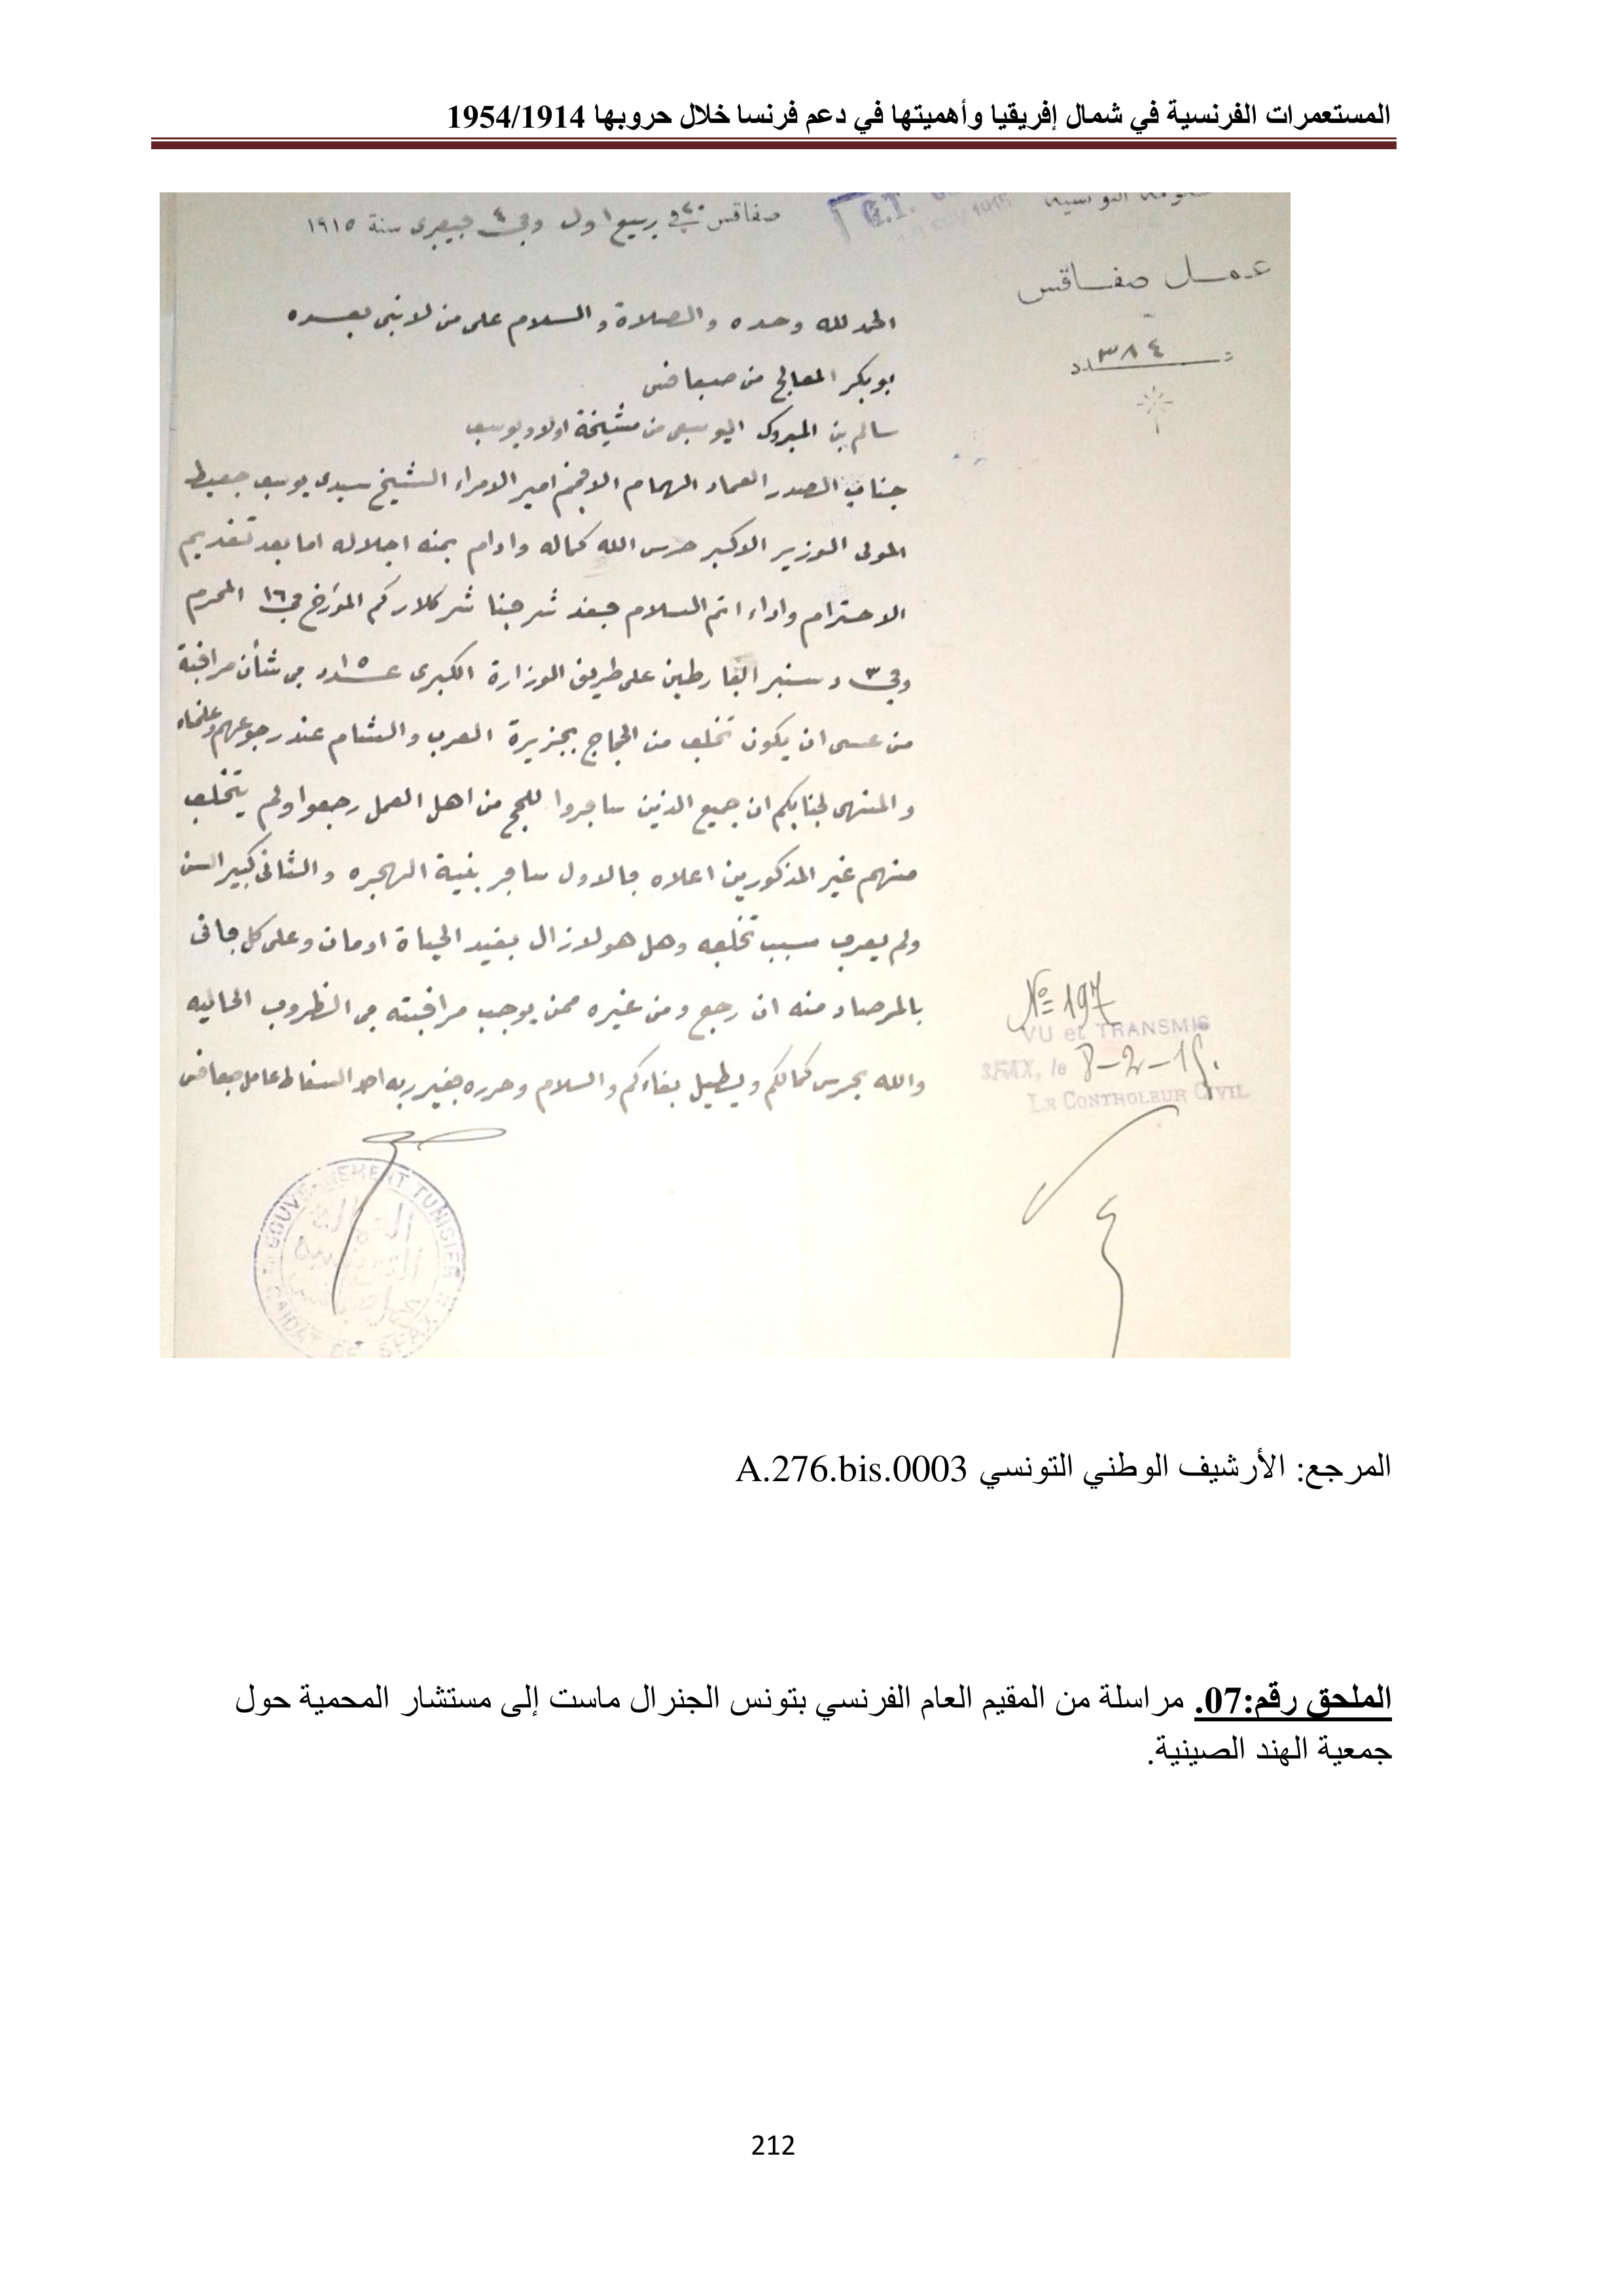 المستعمرات الفرنسية في شمال إفريقيا وأهميتها في دعم فرنسا خلال حروبها 1954/1914
صفاقس في ٢٠ ربيع اول وفي ٤ فيفري سنة ١٩١٥
عمل صفاقس
عدد ٣٨٤
الحمد لله وحده والصلاة والسلام على من لا نبي بعده
بوبكر المعالج من صفاقس
سالم بن المبروك اليوسفي من مشيخة اولاد يوسف
جناب الصدر العماد الهمام الافخم امير الامراء الشيخ سيدي يوسف جعيط
المولى الوزير الاكبر حرس الله كماله وادام بمنه اجلاله اما بعد تقديم
الاحترام واداء اتم السلام فقد شرفنا شركلاركم المؤرخ في ١٦ المحرم
وفي ٣ دسنبر الفارطين على طريق الوزارة الكبرى عدد ١٥ في شأن مراقبة
من عسى ان يكون تخلف من الحجاج بجزيرة العرب والشام عند رجوعهم وعلمناه
والمنهى لجنابكم ان جميع الذين سافروا للحج من اهل العمل رجعوا ولم يتخلف
منهم غير المذكورين اعلاه فالاول سافر بنية الهجره والثاني كبير السن
ولم يعرف سبب تخلفه وهل هو لازال بقيد الحياة او مات وعلى كل فاني
بالمرصاد منه ان رجع ومن غيره ممن يوجب مراقبته في الظروف الحاليه
والله يحرس كمالكم ويطيل بقاءكم والسلام وحرره فقير ربه احمد السقاط عامل صفاقس
№ 197
VU et TRANSMIS
SFAX, le 8-2-15.
LE CONTROLEUR CIVIL
GOUVERNEMENT TUNISIEN
CAIDAT DE SFAX
المرجع: الأرشيف الوطني التونسي A.276.bis.0003
الملحق رقم:07. مراسلة من المقيم العام الفرنسي بتونس الجنرال ماست إلى مستشار المحمية حول
جمعية الهند الصينية.
212